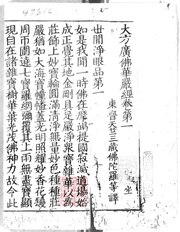 大方廣佛華嚴經卷第一
東晉天竺三藏佛陀羅等譯
世間淨眼品第一
如是我聞一時佛在摩竭提國寂滅道場始
成正覺其地金剛具足嚴淨衆寶雜華以為
莊飾上妙寶輪圓滿清淨無量妙色種種莊
嚴猶如大海寶幢幡蓋光明照耀妙香華鬘
周匝圍遶七寶羅網彌覆其上雨無盡寶顯
現自在諸雜寶樹華葉光茂佛神力故令此